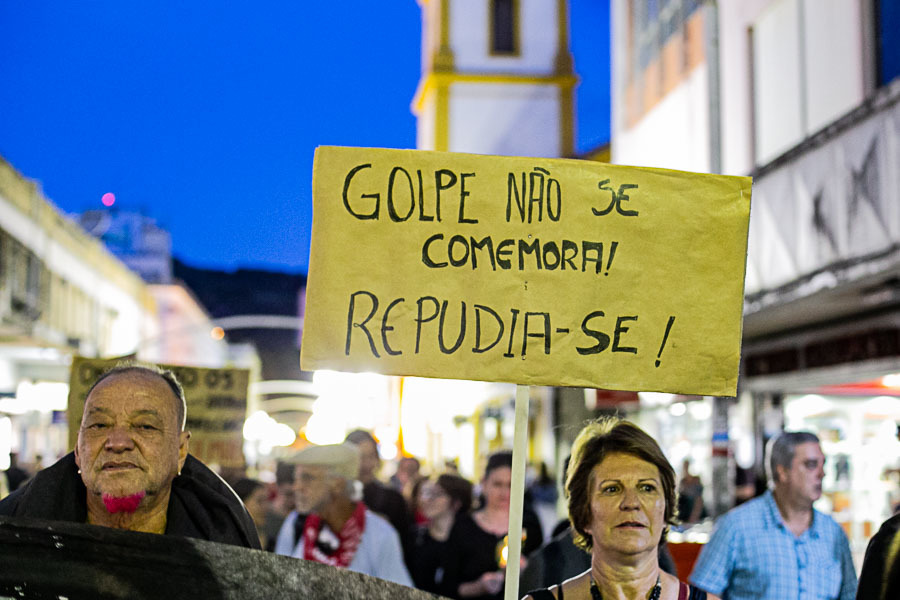 GOLPE NÃO SE
COMEMORA!
REPUDIA-SE!